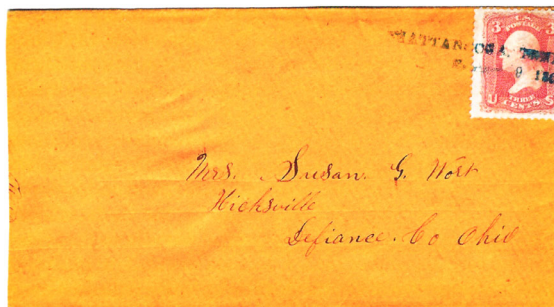 CHATTANOOGA, TENN
3 U.S. 3
POSTAGE
U THREE S
CENTS
Mrs. Susan. G. Wort
Hicksville
Defiance. Co Ohio